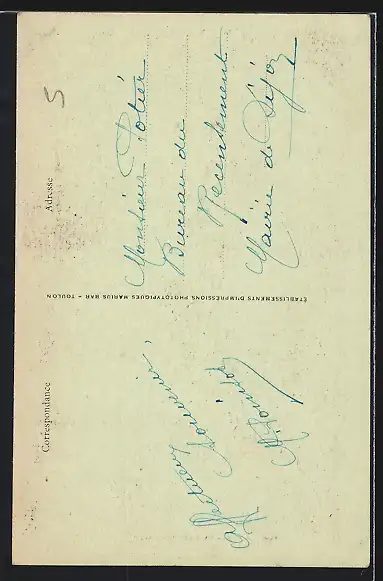 Correspondance
Adresse
5
Monsieur Potier
Bureau du
Recensement
Mairie de Dijon
ÉTABLISSEMENTS D'IMPRESSIONS PHOTOTYPIQUES MARIUS BAR - TOULON
Affectueux Souvenir,